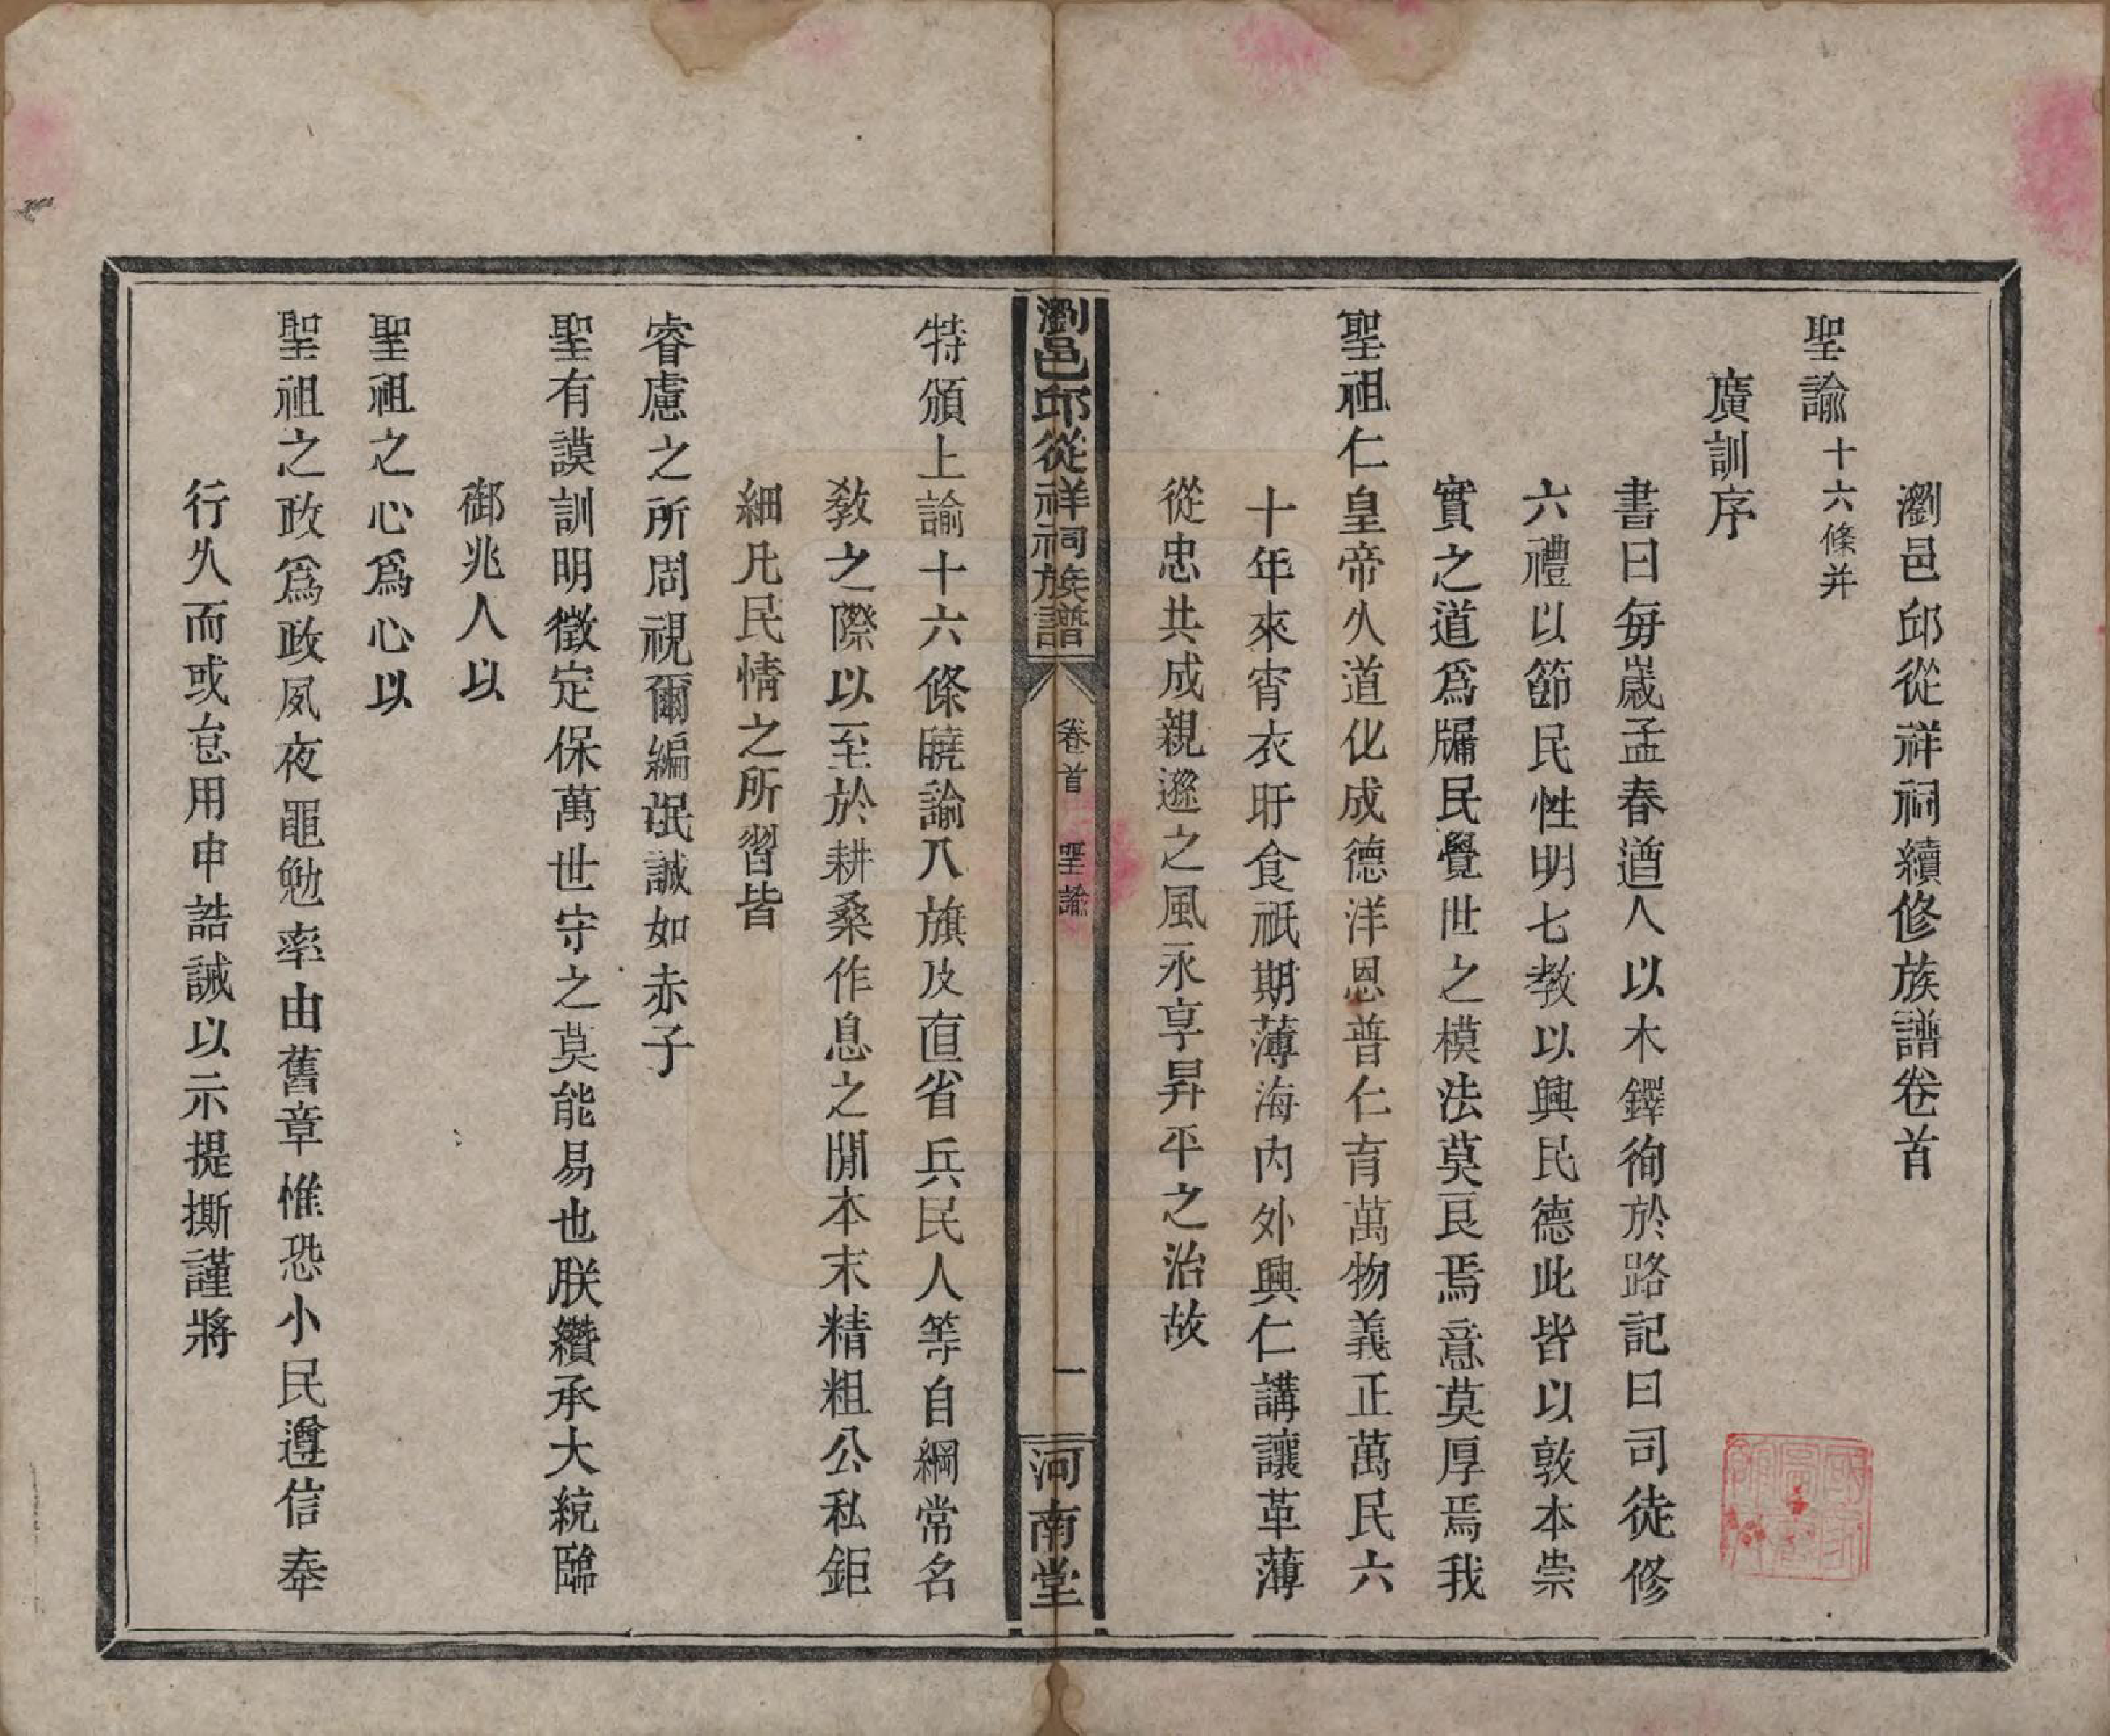 瀏邑邱從祥祠續修族譜卷首
聖諭十六條并
廣訓序
書曰每歲孟春遒人以木鐸徇於路記曰司徒修
六禮以節民性明七教以興民德此皆以敦本崇
實之道爲牖民覺世之模法莫良焉意莫厚焉我
聖祖仁皇帝久道化成德洋恩普仁育萬物義正萬民六
十年來宵衣旰食祇期薄海內外興仁講讓革薄
從忠共成親遜之風永享昇平之治故
瀏邑邱從祥祠族譜
卷首
聖諭
一
河南堂
特頒上諭十六條曉諭八旗及直省兵民人等自綱常名
敎之際以至於耕桑作息之閒本末精粗公私鉅
細凡民情之所習皆
睿慮之所周視爾編氓誠如赤子
聖有謨訓明徵定保萬世守之莫能易也朕纘承大統臨
御兆人以
聖祖之心爲心以
聖祖之政爲政夙夜黽勉率由舊章惟恐小民遵信奉
行久而或怠用申誥誡以示提撕謹將